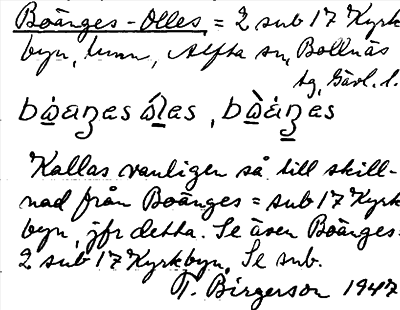 Boänges-Olles = 2 sub 17 Kyrk
byn, hmn, Alfta sn, Bollnäs
tg, Gävl. l.
Kallas vanligen så till skill-
nad från Boänges = sub 17 Kyrk
byn, jfr detta. Se även Boänges
2 sub 17 Kyrkbyn. Se sub.
T. Birgerson 1947